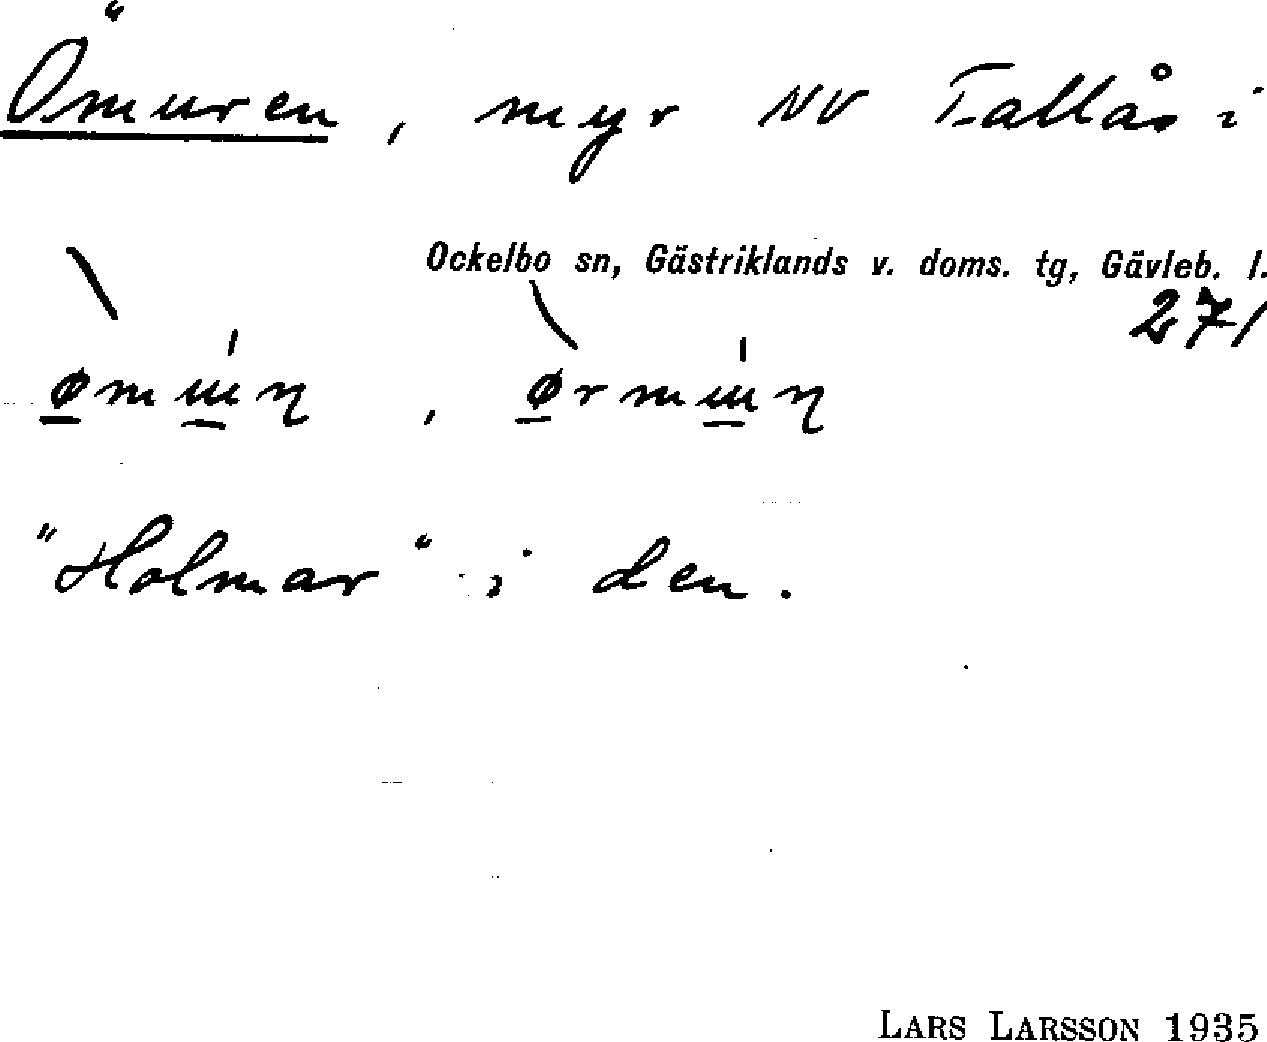 Ömuren, myr NV Tallås i
Ockelbo sn, Gästriklands v. doms. tg, Gävleb. l.
271
"Holmar" i den.
LARS LARSSON 1935